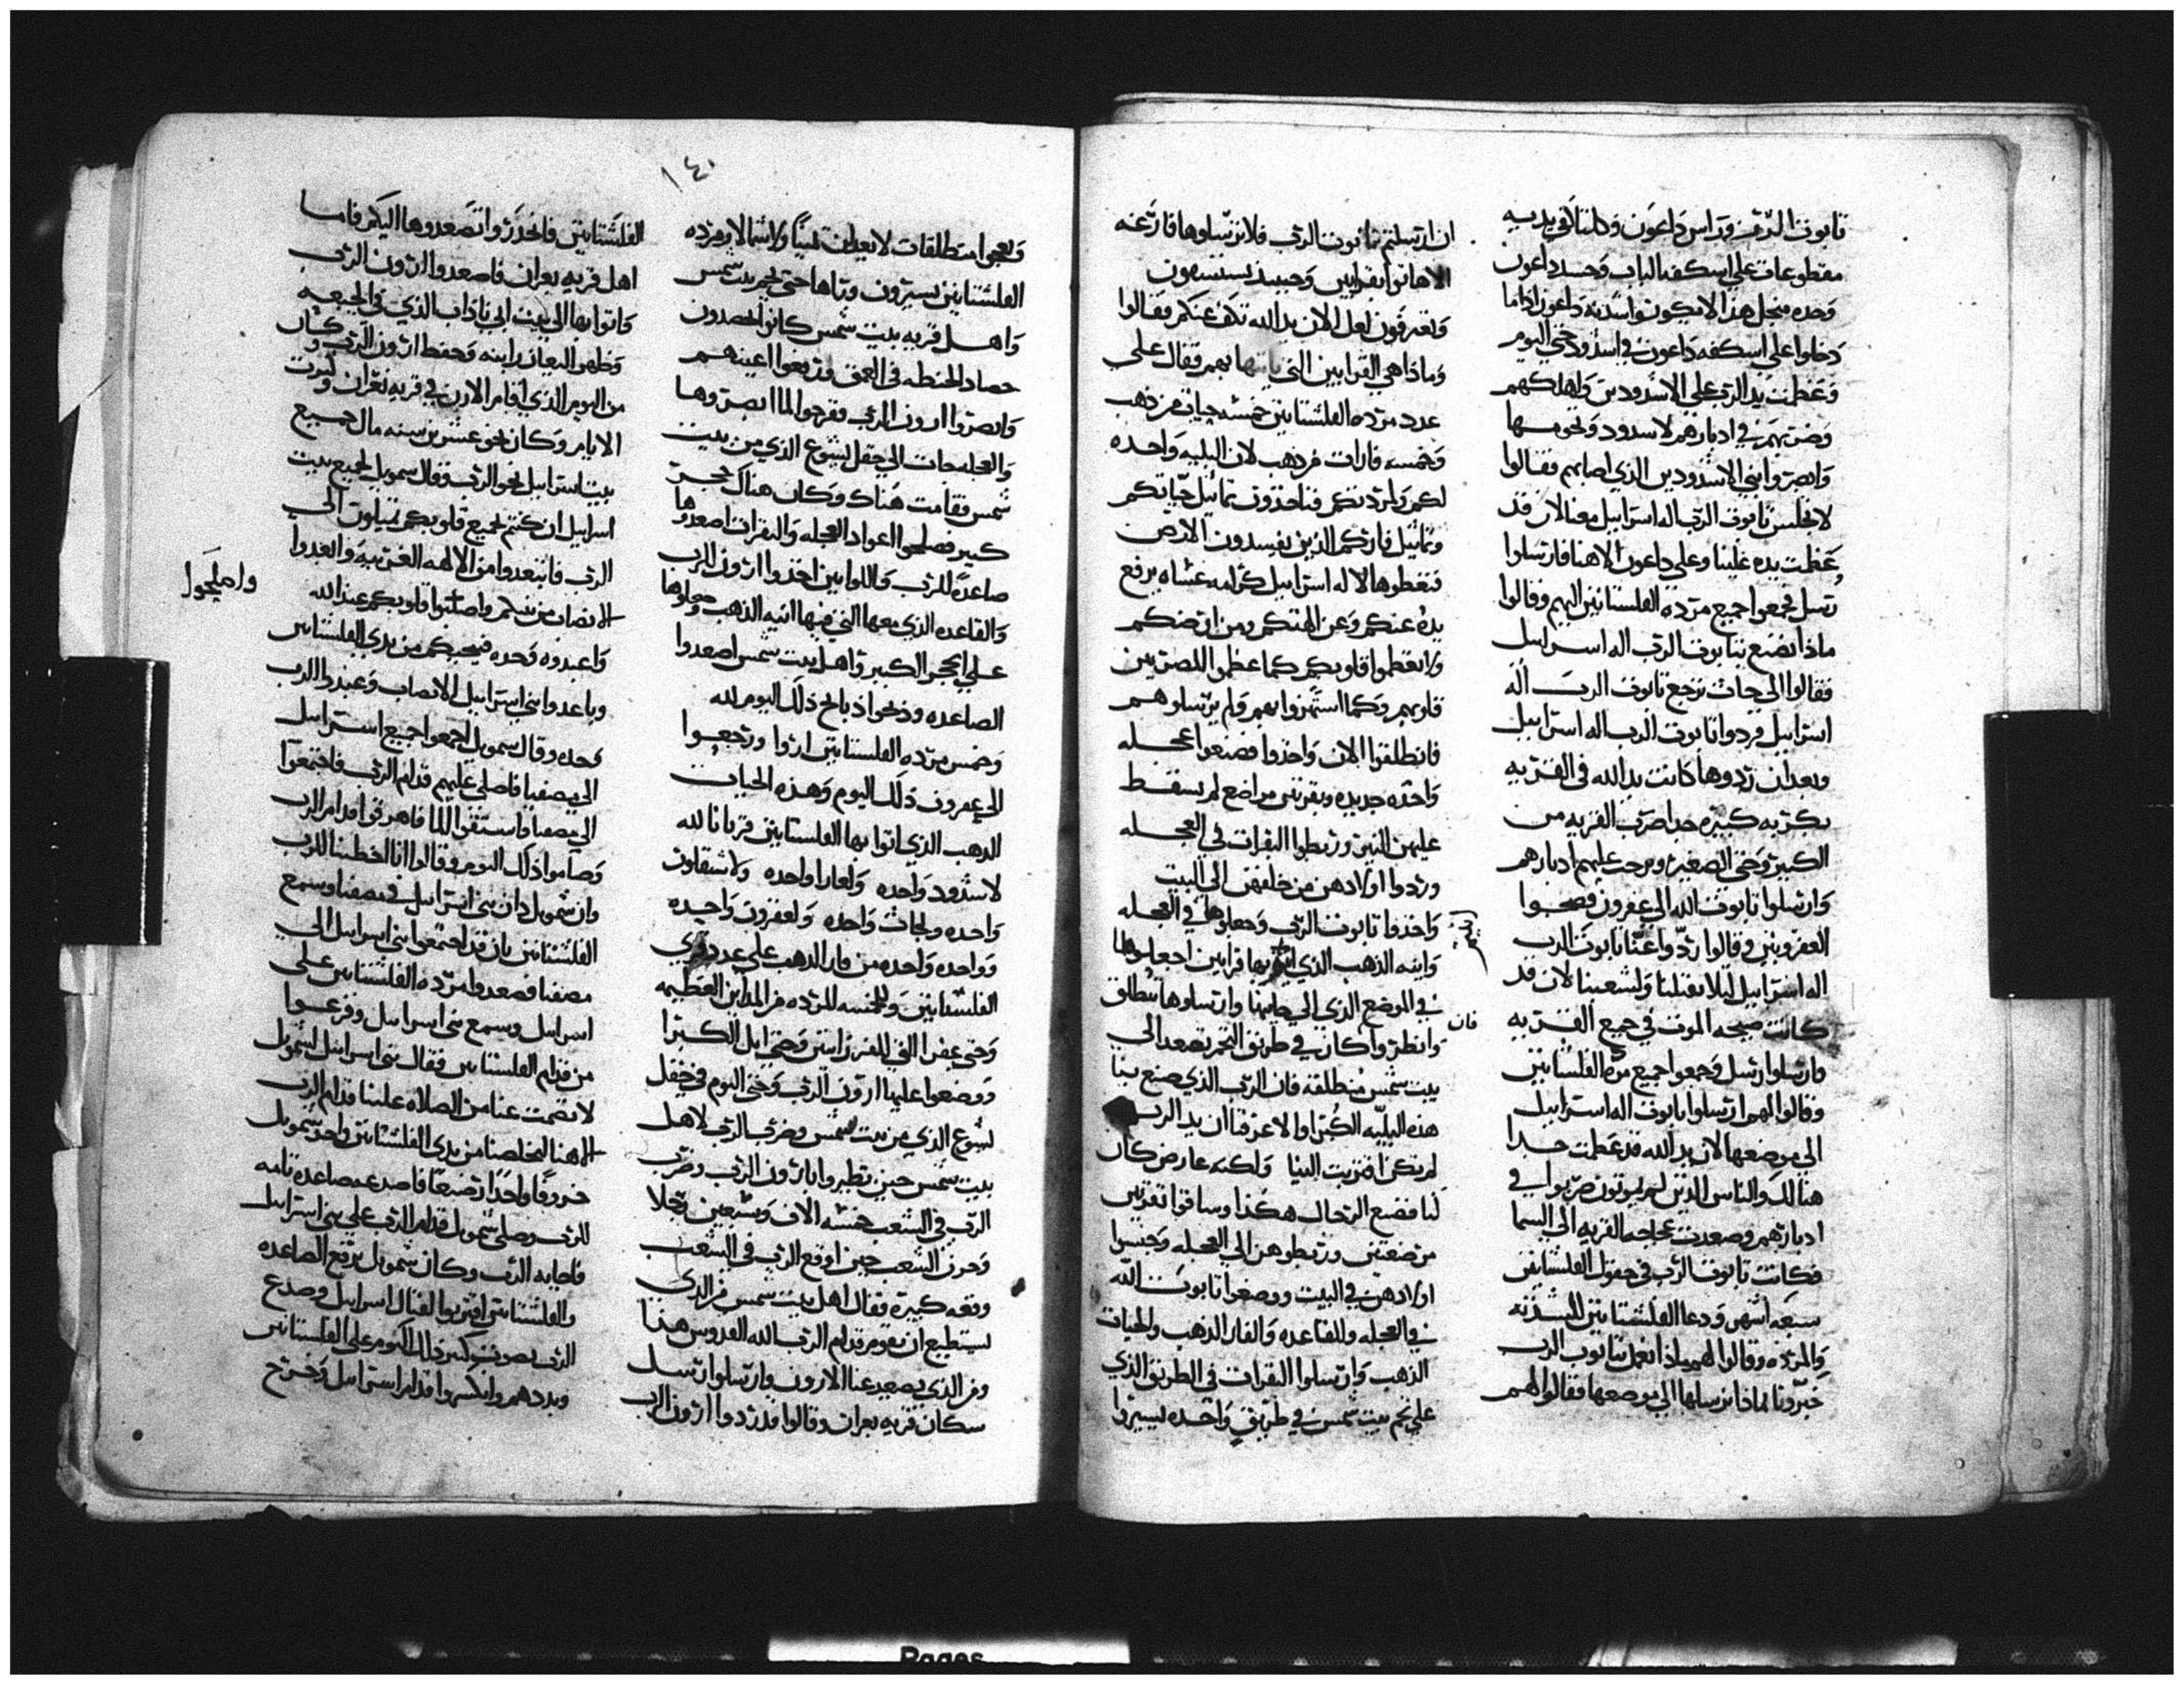 تابوت الرب وراس داعون وكلتا يديه
مقطوعات على اسكفه الباب وجسد داعون
وحده منجل هذا لا يكونوا سدنه داعون اذا ما
دخلوا على اسكفه داعون في اسدود حتى اليوم
وعظمت يد الرب على الاسدوديين واهلكهم
وضربهم في ادبارهم لاسدود وتخومها
وابصروا بني الاسدوديين الذي اصابهم فقالوا
لا يجلس تابوت الرب اله اسراييل معنا لان قد
عظمت يده علينا وعلى داعون الاهنا فارسلوا
رسل فجمعوا جميع مرده الفلستانيين اليهم وقالوا
ماذا نصنع بتابوت الرب اله اسراييل
فقالوا الى جاث نرجع تابوت الرب اله
اسراييل فردوا تابوت الرب اله اسراييل
وبعد ان ردوها كانت يد الله في القريه
بكربه كبيره جدا ضرب القريه من
الكبير وحتى الصغير وبرحت عليهم ادبارهم
وارسلوا تابوت الله الى عفرون فصحوا
العفرونيين وقالوا ردوا عنا تابوت الرب
اله اسراييل ليلا يقتلنا ولشعبنا لان قد
كانت صيحه الموت في جميع القريه
وارسلوا رسل وجمعوا جميع مرده الفلستانيين
وقالوا لهم ارسلوا تابوت اله اسراييل
الى موضعها لان يد الله قد عظمت جدا
هنالك والناس الذين لم يموتون ضربوا في
ادبارهم وصعدت عجاجه القريه الى السما
فكانت تابوت الرب في حقول الفلشتانيين
سبعه اشهر ودعا الفلشتانيين للسدنه
والمرده وقالوا لهم ماذا نعمل بتابوت الرب
خبرونا بماذا نرسلها الى موضعها فقالوا لهم
ان ارسلتم تابوت الرب فلا ترسلوها فارغه
الا هاتوا بقرابين وحينيذ يستشفون
وتعرفون لعل الان يد الله تكف عنكم فقالوا
وماذا هي القرابين التي ناتيها بهم فقال على
عدد مرده الفلشتانيين خمسه حيات من ذهب
وخمسه فارات من ذهب لان البليه واحده
لكم ولمردتكم فتاخذون تماثيل حياتكم
وتماثيل فاركم الذين يفسدون الارض
فتعطوها لاله اسراييل كرامه عساه يرفع
يده عنكم وعن الهتكم ومن ارضكم
ولا تعظموا قلوبكم كما عظموا المصريين
قلوبهم وكما استهزوا بهم ولم يرسلوهم
فانطلقوا الان واخذوا فصنعوا عجله
واحده جديده وبقرتين مراضع لم يسقط
عليهن النير وربطوا البقرات في العجله
وردوا اولادهن من خلفهن الى البيت
واخذوا تابوت الرب وجعلوها في العجله
وانيه الذهب الذي اتيتم بها قرابين اجعلوها
اتيتم
في الموضع الذي الى جانبها وارسلوها تنطلق
وانظروا كان في طريق التخم تصعد الى
فان
بيت شمس منطلقه فان الرب الذي صنع بنا
هذه البليه الكبرا والا عرفنا ان يد الرب
لم تكن اقتربت الينا ولكنه عارض كان
لنا فصنع الرجال هكذا وساقوا بقرتين
مرضعتين وربطوهن الى العجله وحبسوا
اولادهن في البيت ووضعوا تابوت الله
في العجله وللقاعده والفار الذهب والحيات
الذهب وارسلوا البقرات في الطريق الذي
على تخم بيت شمس في طريق واحده يسيروا
١٤٠
وتعجوا منطلقات لا يعدلن يمينا ولا شمالا ومرده
الفلشتانيين يسيرون وراها حتى تخم بيت شمس
واهل قريه بيت شمس كانوا يحصدون
حصاد الحنطه في العمق فرفعوا اعينهم
وابصروا ارون الرب وفرحوا لما ابصروها
والعجله جات الى حقل يشوع الذي من بيت
شمس فقامت هناك وكان هناك حجر
كبير فصلحوا اعواد العجله والبقرات اصعدوها
صاعده للرب واللوايين اخذوا ارون الرب
والقاعده الذي معها التي فيها انيه الذهب وجعلوها
على الحجر الكبير واهل بيت شمس اصعدوا
الصاعده وذبحوا ذبايح ذلك اليوم لله
وخمس مرده الفلستانيين اروا ورجعوا
الى عفرون ذلك اليوم وهذه الحيات
الذهب الذي اتوا بها الفلستانيين قربانا لله
لاسدود واحده ولعازا واحده ولاشقلون
واحده ولجاث واحده ولعفرون واحده
وواحده واحده من فار الذهب على عدد قرى
الفلشتانيين وللخمسه المرده من المداين العظيمه
وحتى عفرا التي للفرزانيين وحتى ابل الكبرا
ووضعوا عليها ارون الرب وحتى اليوم في حقل
يشوع الذي من بيت شمس وضرب الرب لاهل
بيت شمس حين نظروا بارون الرب وضرب
الرب في الشعب خمسه الاف وسبعين رجلا
وحزن الشعب حين اوقع الرب في الشعب
وقعه كبيره فقال اهل بيت شمس من الذي
يستطيع ان يقوم قدام الرب الله القدوس هذا
ومن الذي يصعد عنا الارون وارسلوا رسل
سكان قريه يعران وقالوا قد ردوا ارون الرب
الفلشتانيين فانحدروا تصعدوها اليكم فاما
اهل قريه يعران فاصعدوا ارون الرب
واتوا بها الى بيت ابي ناداب الذي في الجبعه
وظهر اليعازر ابنه وحفظ ارون الرب وكان
من اليوم الذي اقام الارون في قريه نعران وكبرت
الايام وكان نحو عشرين سنه مال جميع
بيت اسراييل نحو الرب وقال سمويل لجميع بيت
اسراييل ان كنتم لجميع قلوبكم تميلون الى
الرب فابتعدوا من الالهه الغريبه وابعدوا
الانصاب من بينكم واصلتوا قلوبكم عند الله
واصلحوا
واعبدوه وحده فينجيكم من يدي الفلشتانيين
وباعدوا بني اسراييل الانصاب وعبدوا الرب
وحده وقال سمويل اجمعوا جميع اسراييل
الى مصفيا فاصلي عليهم قدام الرب فاجتمعوا
الى مصفيا واستقوا الما فاهرقوا قدام الرب
وصاموا ذلك اليوم وقالوا انا اخطينا للرب
وان شمويل دان بني اسراييل في مصفيا وسمع
الفلشتانيين بان قد اجتمعوا بني اسراييل الى
مصفيا فصعدوا مرده الفلشتانيين على
اسراييل وسمع بني اسراييل وفزعوا
من قدام الفلشتانيين فقال بني اسراييل لشمويل
لا تصمت عنا من الصلاه علينا قدام الرب
الاهنا ليخلصنا من يدي الفلشتانيين واخذ شمويل
خروفا واحدا رضيعا فاصعده صاعده تامه
للرب وصلى شمويل قدام الرب على بني اسراييل
فاجابه الرب وكان شمويل يرفع الصاعده
والفلشتانيين اقتربوا لقتال اسراييل وصدع
الرب بصوت كبير ذلك اليوم على الفلستانيين
وبددهم وانكسروا قدام اسراييل وخرج
Pages